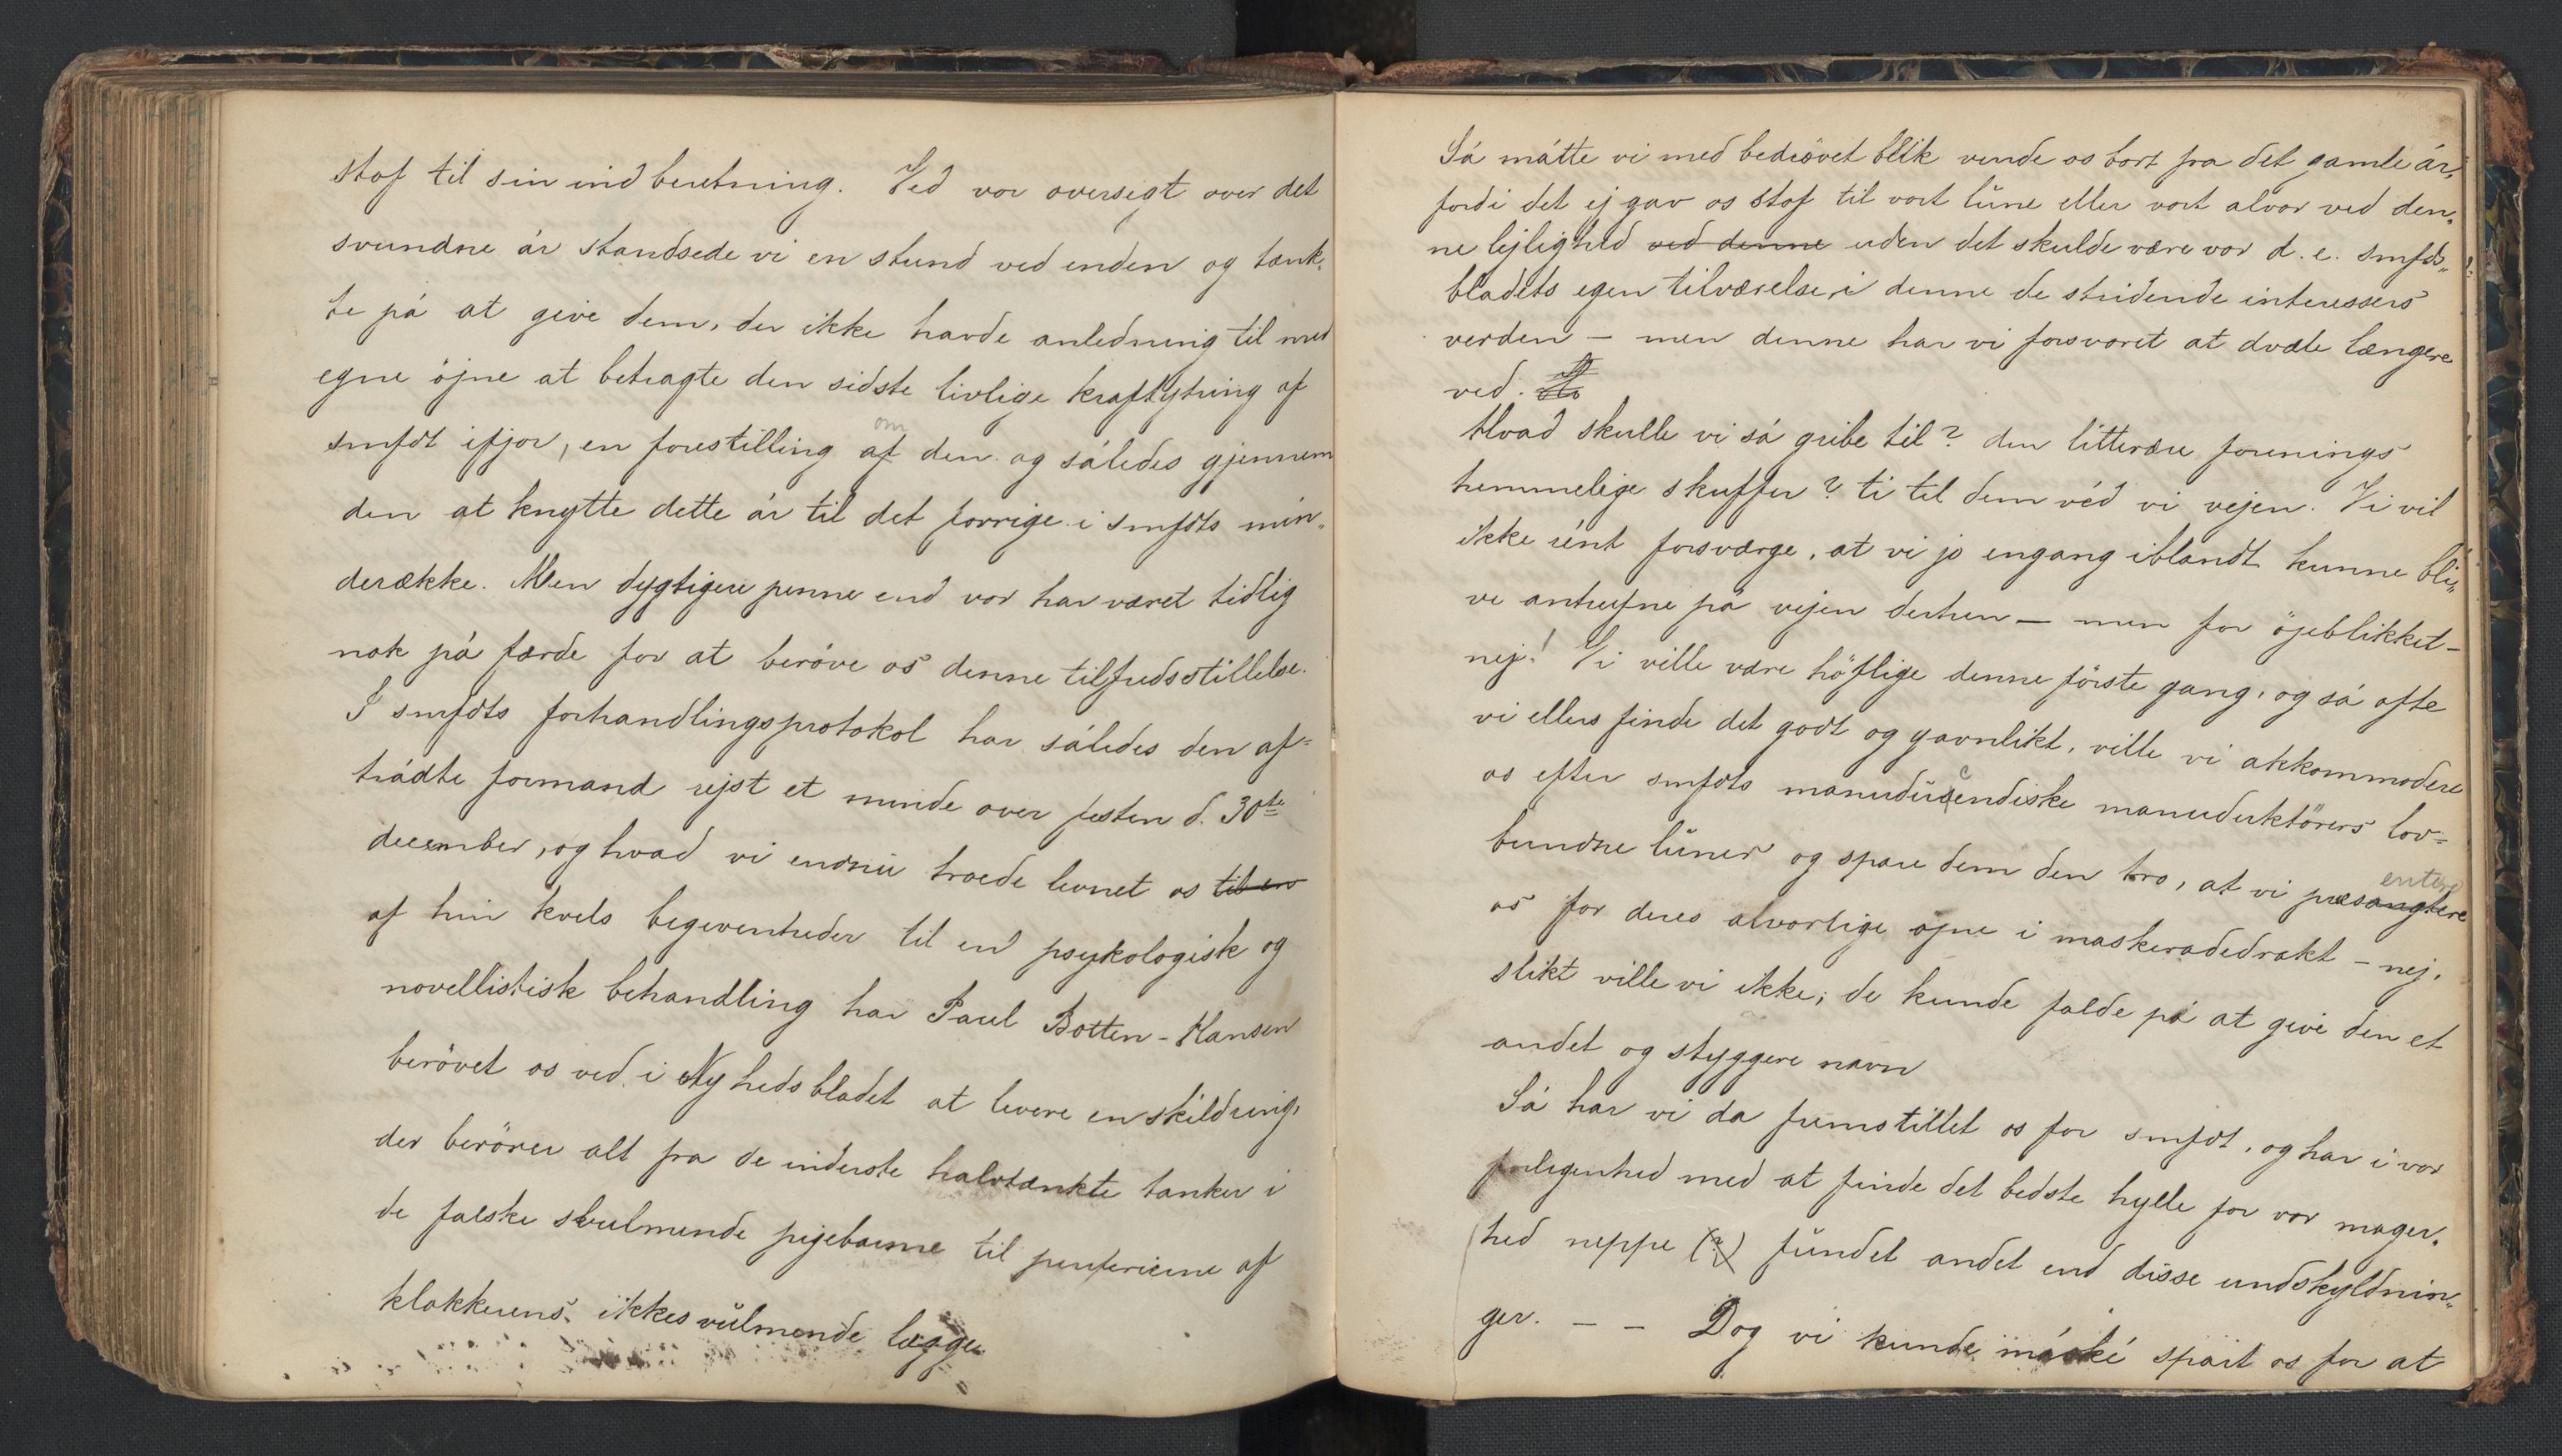 stof til sin indberetning. Ved vor oversigt over det
svundne år standsede vi en stund ved enden og tænk-
te på at give dem, der ikke havde anledning til med
egne öjne at betragte den sidste livlige kraftytring af
smfdt ifjor, en forestilling af om den og således gjennem
den at knytte dette år til det forrige i smfdts min-
derække. Men dygtigere penne end vor har været tidlig
nok på færde for at beröve os denne tilfredsstillelse.
I smfdts forhandlingsprotokol har således den af-
trådte formand rejst et minde over festen d. 30te
december, og hvad vi endnu troede levnet os til en
af hin kvels begivenheder til en psykologisk og
novellistisk behandling har Paul Botten-Hansen
berövet os ved i Nyhedsbladet at levere en skildring,
der berörer alt fra de inderste halvtænkte tanker i
de falske svulmende pigebarme til periferierne af
klokkerens ikkesvulmende lægge.
Så måtte vi med bedrövet blik vende os bort fra det gamle år,
fordi det ej gav os stof til vort lune eller vort alvor ved den-
ne lejlighed ved denne uden det skulde være vor d. e. smfds-
bladets egen tilværelse i denne de stridende interessers
verden – men denne har vi forsvoret at dvæle længere
ved.
Hvad skulle vi så gribe til? den litterære forenings
hemmelige skuffer? ti til dem véd vi vejen. Vi vil
ikke rént forsværge, at vi jo engang iblandt kunne bli-
ve antrufne på vejen derhen – men for öjeblikket –
nej! Vi ville være höflige denne förste gang, og så ofte
vi ellers finde det godt og gavnlikt, ville vi akkommodere
os efter smfdts manuducendiske manuduktörers lov-
bundne luner og spare dem den tro, at vi præsangtere entere
os for deres alvorlige öjne i maskeradedrakt – nej,
slikt ville vi ikke; de kunde falde på at give den et
andet og styggere navn
Så har vi da fremstillet os for smfdt, og har i vor
forlegenhed med at finde det bedste hylle for vor mager-
hed neppe (?) fundet andet end disse undskyldnin-
ger. – – Dog vi kunde måské spart os for at